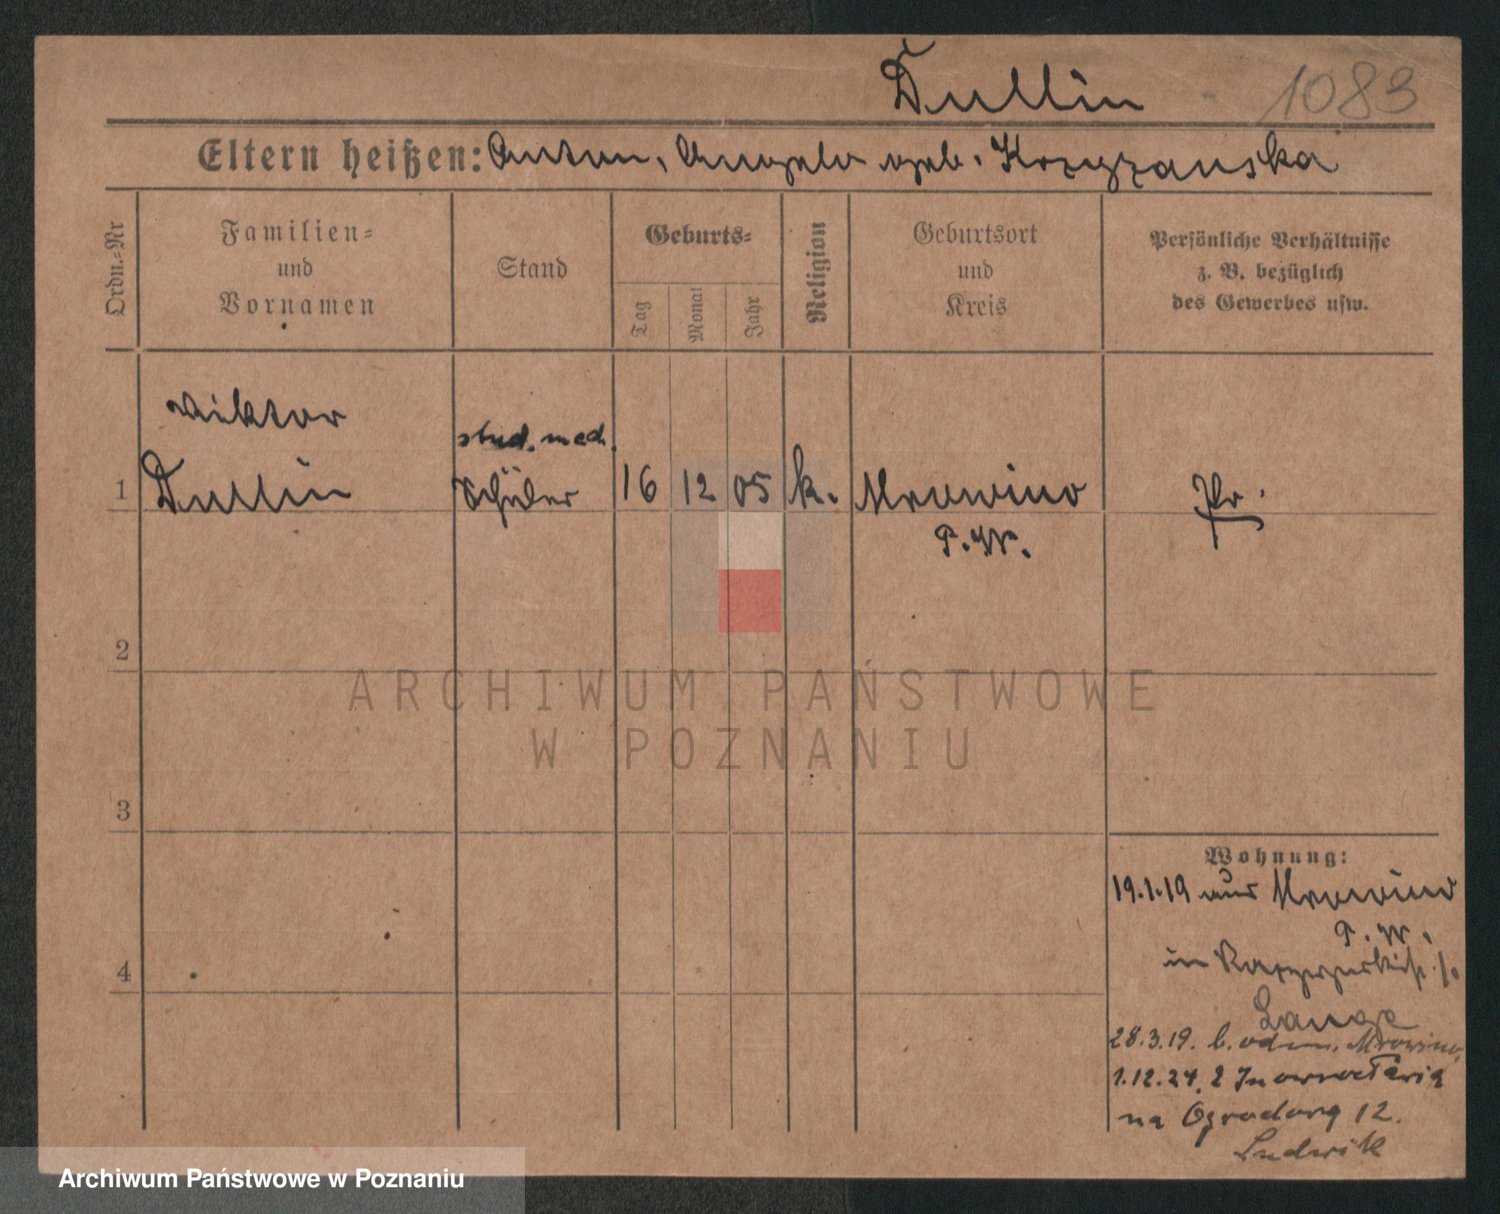 Dullin 1083
Eltern heißen: Anton, Angela geb. Krzyzanska
Ordn.-Nr
Familien-
und
Vornamen
Stand
Geburts-
Tag
Monat
Jahr
Religion
Geburtsort
und
Kreis
Persönliche Verhältnisse
z. B. bezüglich
des Gewerbes usw.
Viktor
stud. med.
1 Dullin Schüler 16 12 05 k. Mrowino Pr.
P. W.
2
ARCHIWUM PAŃSTWOWE
W POZNANIU
3
Wohnung:
19.1.19 aus Mrowino
P. W.
4
in
Lange
28.3.19. Mrowino
1.12.24, Z Inowrocławia
na Ogrodową 12.
Ludwik
Archiwum Państwowe w Poznaniu